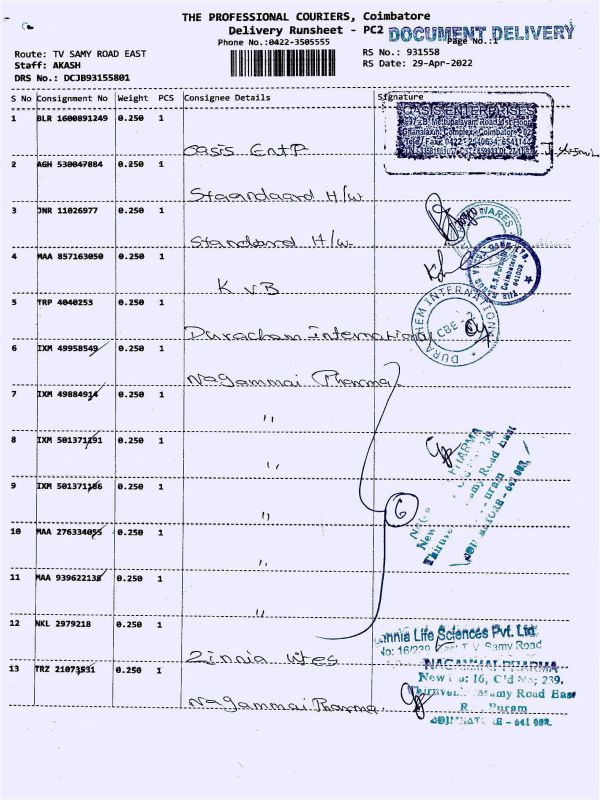 THE PROFESSIONAL COURIERS, Coimbatore
Delivery Runsheet - PC2
DOCUMENT DELIVERY
Phone No.:0422-3505555
Page No.:1
Route: TV SAMY ROAD EAST
RS No.: 931558
Staff: AKASH
RS Date: 29-Apr-2022
DRS No.: DCJB93155801
S No Consignment No Weight PCS Consignee Details Signature
1 BLR 1600891249 0.250 1 Oasis Entp
OASIS ENTERPRISES
2 AGH 530047884 0.250 1 Staandaard H/w
3 JNR 11026977 0.250 1 Standard H/w
WARES
4 MAA 857163050 0.250 1 K V B
Coimbatore
5 TRP 4040253 0.250 1 Duracham International
DURACHEM INTERNATIONAL
CBE - 2
6 IXM 49958549 0.250 1 Nagammai Pharma
7 IXM 49884914 0.250 1 "
8 IXM 501371191 0.250 1 "
PHARMA
239,
Samy Road East
Puram
COIMBATORE - 641 002.
9 IXM 501371186 0.250 1 "
6
10 MAA 276334055 0.250 1 "
11 MAA 939622138 0.250 1 "
12 NKL 2979218 0.250 1 Zinnia Lifes
Life Sciences Pvt. Ltd
No: 16/239 T V Samy Road
13 TRZ 21073931 0.250 1 Nagammai Pharma
NAGAMMAI PHARMA
New No: 16, Old No; 239,
Samy Road East
R Puram
COIMBATORE - 641 002.